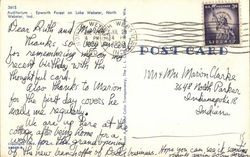 3615
Auditorium - Epworth Forest on Lake Webster, North
Webster, Ind.
Dear Ruth and
Thanks so very much
for remembering me on my
recent birthday with the
thoughtful card.
Also thanks to Marion
for the first day covers he
sends me regularly.
We are up here at the
cottage after being home for a
week for the grand opening
of the new branch office of business. Hope you can see it
POST CARD
Mr & Mrs Marion Clarke
3648 North Parker
Indianapolis 18
Indiana